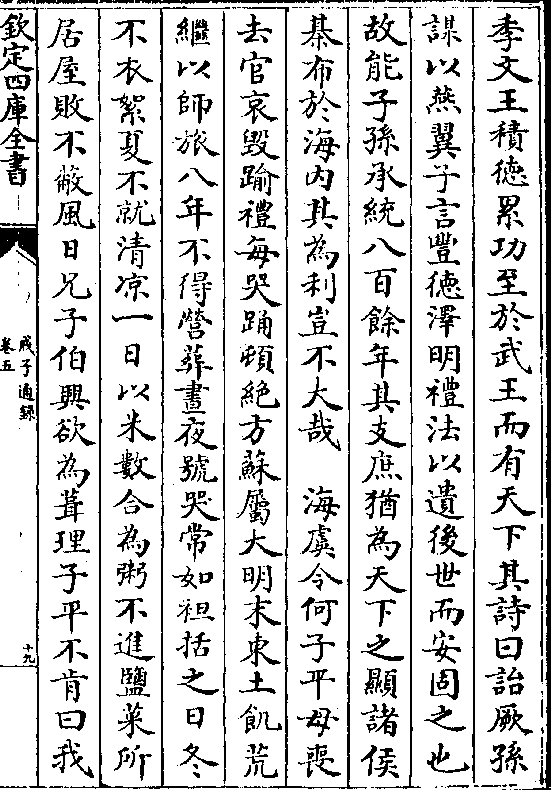 季文王積德累功至於武王而有天下其詩曰詒厥孫
謀以燕翼子言豐德澤明禮法以遺後世而安固之也
故能子孫承統八百餘年其支庶猶為天下之顯諸侯
棊布於海内其為利豈不大哉　海虞令何子平母喪
去官哀毀踰禮每哭踊頓絶方蘇屬大明末東土飢荒
繼以師旅八年不得營葬晝夜號哭常如袒括之日冬
不衣絮夏不就清凉一日以米數合為粥不進鹽菜所
居屋敗不蔽風日兄子伯興欲為葺理子平不肯曰我
欽定四庫全書
戒子通録
卷五
十九